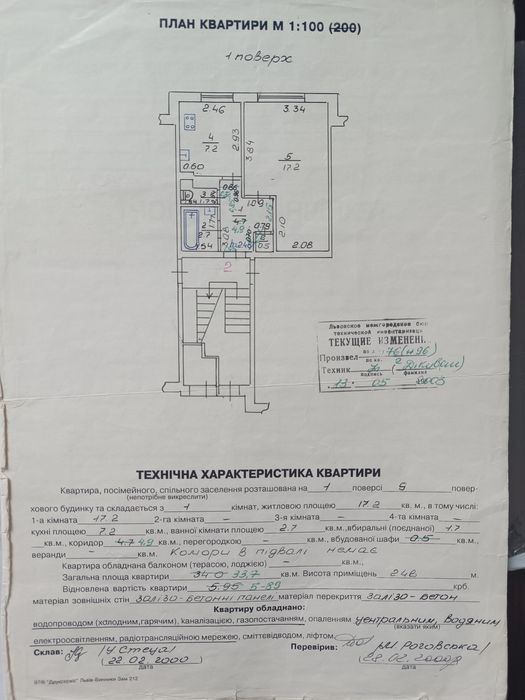 ПЛАН КВАРТИРИ М 1:100 (200)
1 поверх
2.46
3.34
4
7.2
2.93
3.84
5
17.2
0.60
3.8
1
4.7
4.9
2
2.7
1.54
2.10
0.79
0.5
2.08
2
Львовское межгородское бюр
технической инвентаризац
ТЕКУЩИЕ ИЗМЕНЕН
Произвел
Техник
подпись
фамилия
13 05
ТЕХНІЧНА ХАРАКТЕРИСТИКА КВАРТИРИ
Квартира, посімейного, спільного заселення розташована на 1 поверсі 5 повер-
(непотрібне викреслити)
хового будинку та складається з 1 кімнат, житловою площею 17.2 кв. м., в тому числі:
1-а кімната 17.2 2-га кімната – 3-я кімната – 4-та кімната –
кухні площею 7.2 кв.м., ванної кімнати площею 2.7 кв.м., вбиральні (поєднаної) 1.7
кв.м., коридор 4.7 4.9 кв.м., перегородкою – кв.м., вбудованої шафи 0.5 кв.м.,
веранди – кв.м. Комори в підвалі немає
Квартира обладнана балконом (терасою, лоджією) – кв.м.,
Загальна площа квартири 34.0 33,7 кв.м. Висота приміщень 248 м.
Відновлена вартість квартири 5.95 5-89 крб.
матеріал зовнішніх стін залізо-бетонні панелі матеріал перекриття залізо-бетон
Квартиру обладнано:
водопроводом (холодним,гарячим), каналізацією, газопостачанням, опаленням центральним, водяним
(вказати яким)
електроосвітленням, радіотрансляційною мережею, сміттєвідводом, ліфтом.
Склав: / У Стеца / Перевірив: / Роговська /
22.02.2000 28.02.2000р